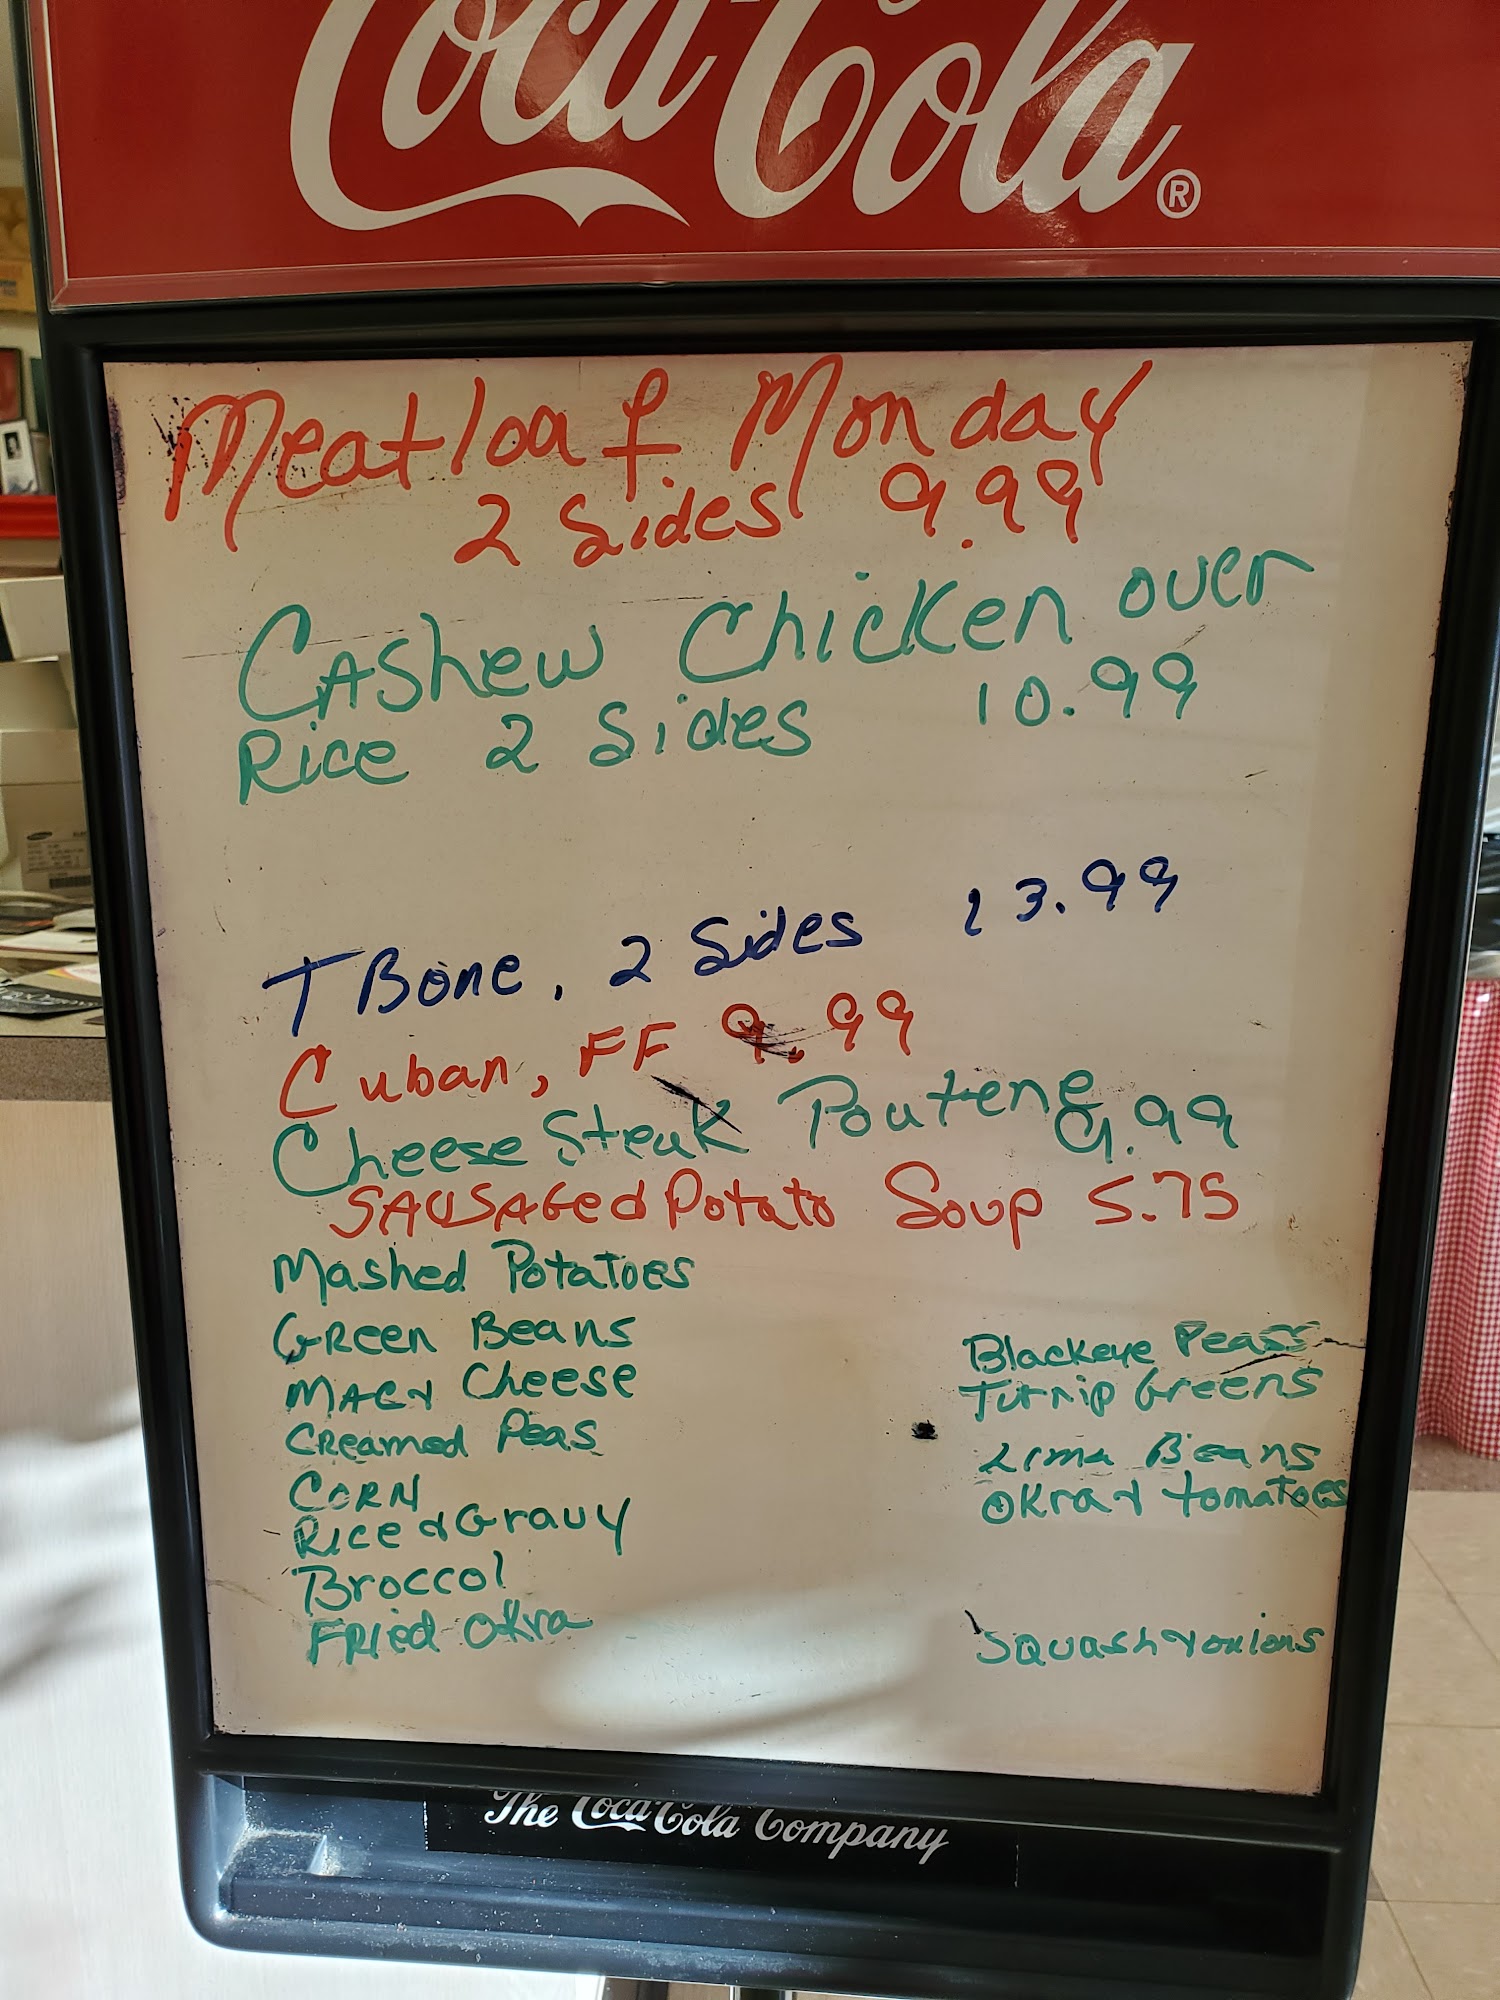 Coca-Cola®
Meatloaf Monday
2 Sides 9.99
Cashew Chicken over
Rice 2 Sides 10.99
T Bone, 2 Sides 13.99
Cuban, FF 9.99
Cheese Steak Poutene 9.99
SAUSAGed Potato Soup 5.75
Mashed Potatoes
Green Beans
Mac & Cheese
Creamed Peas
Corn
Rice & Gravy
Broccol
Fried Okra
Blackeye Peas
Turnip Greens
Lima Beans
Okra & tomatoes
Squash & onions
The Coca-Cola Company